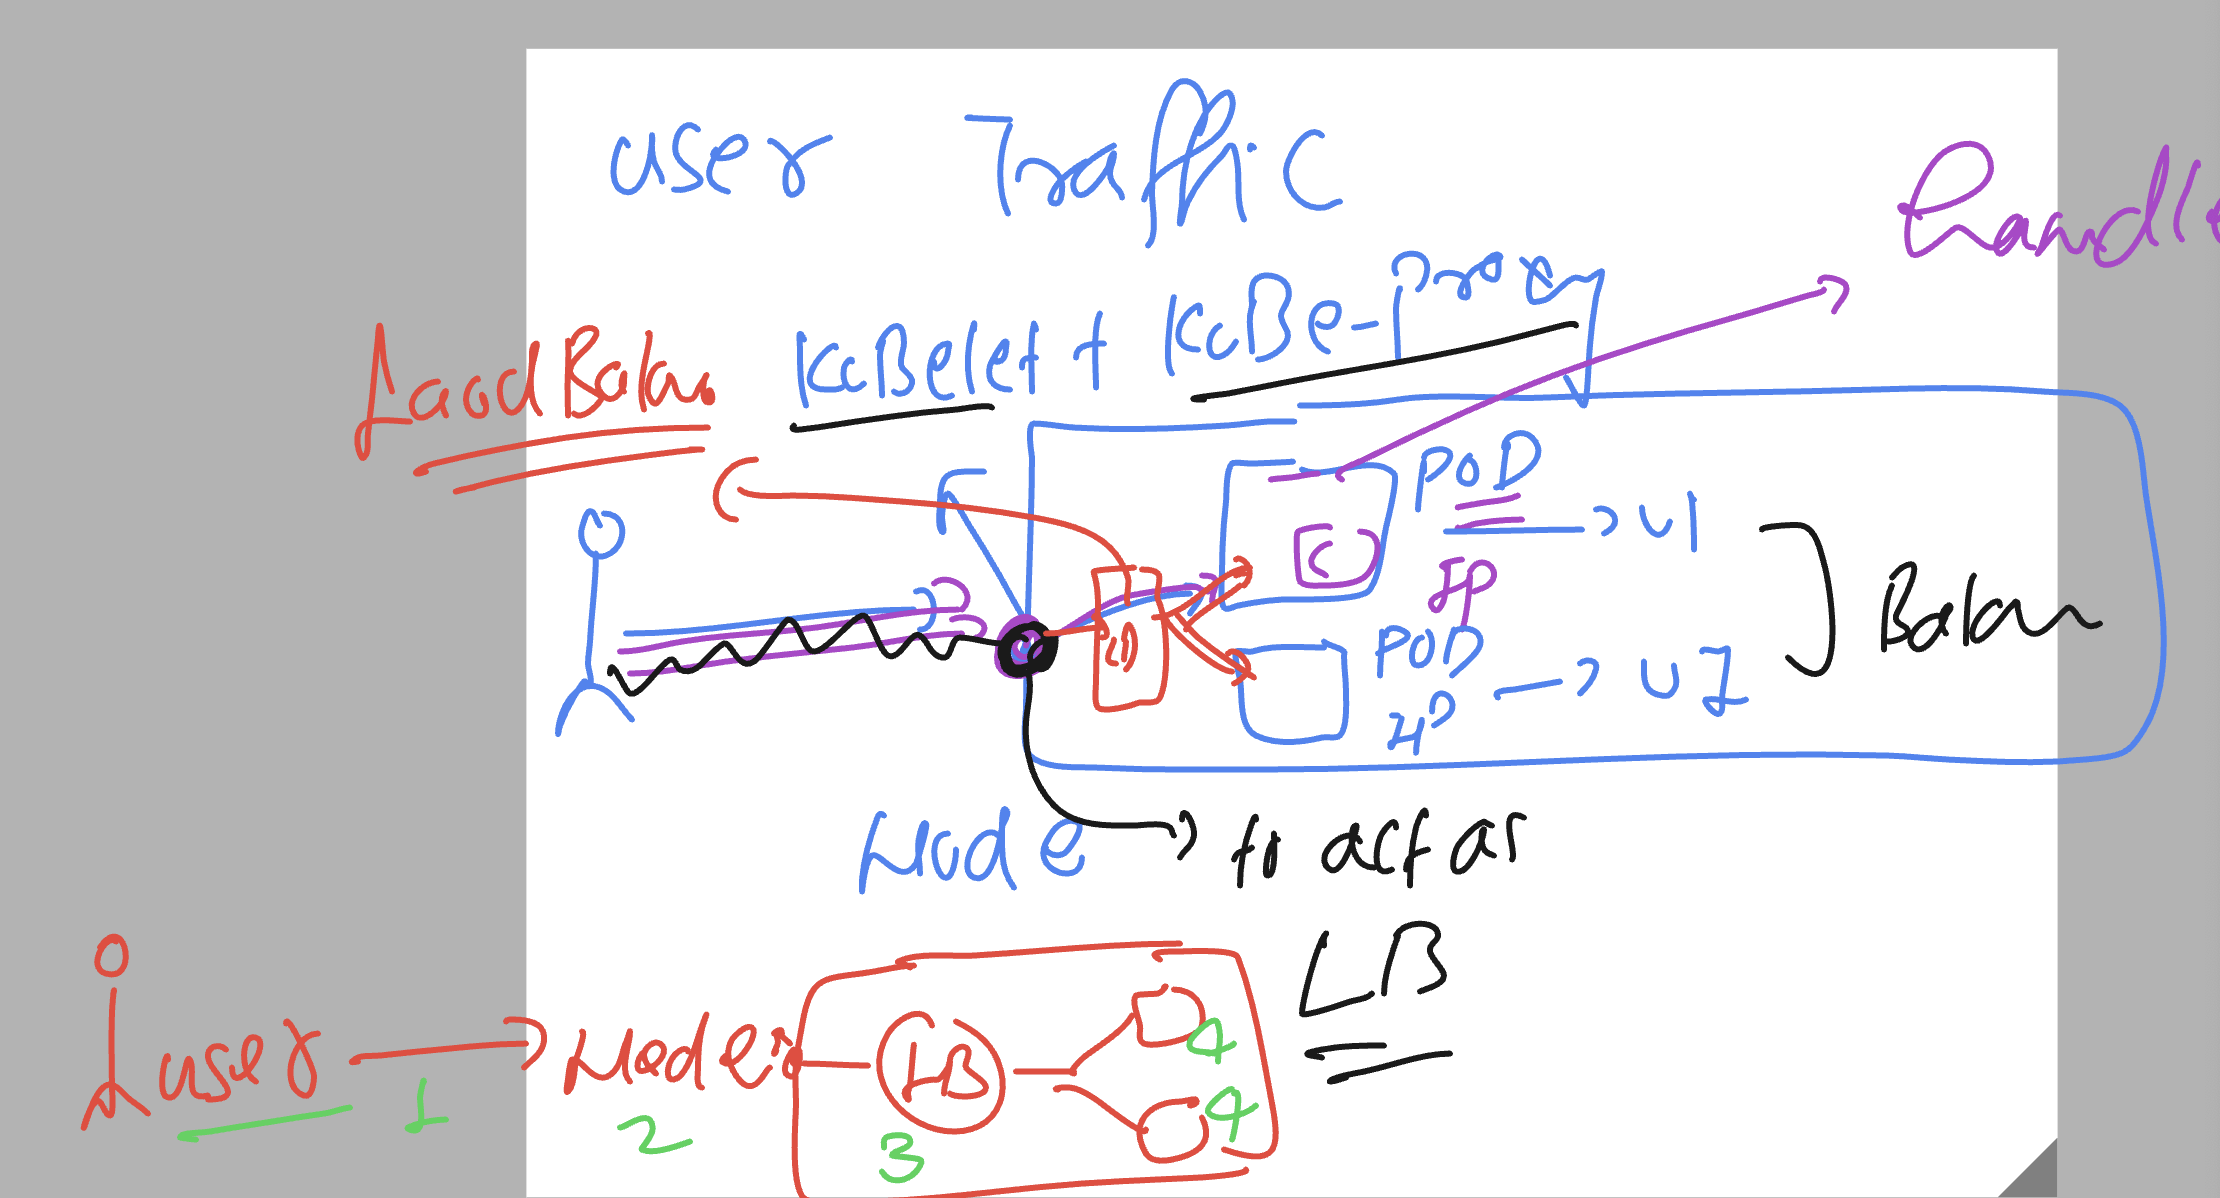 user Traffic
Handle
LoadBalan
KuBelet + KuBe-Proxy
POD → UI
C
IP
LB
POD
IP → UI
Balan
Node → to act as
LB
user → Node
LB
1
2
3
4
4